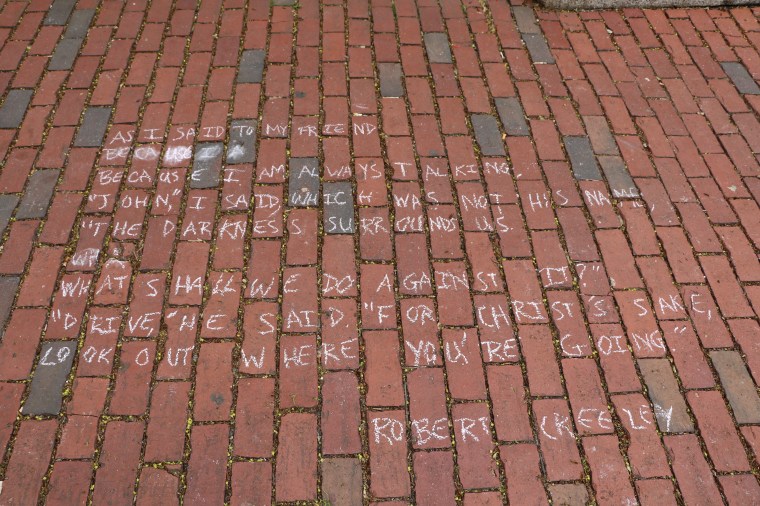 AS I SAID TO MY FRIEND
BECAUSE I A
BECAUSE I AM ALWAYS TALKING,
"JOHN," I SAID, WHICH WAS NOT HIS NAME,
"THE DARKNESS SURROUNDS US.
WHA
WHAT SHALL WE DO AGAINST IT?"
"DRIVE," HE SAID. "FOR CHRIST'S SAKE,
LOOK OUT WHERE YOU'RE GOING."
ROBERT CREELEY